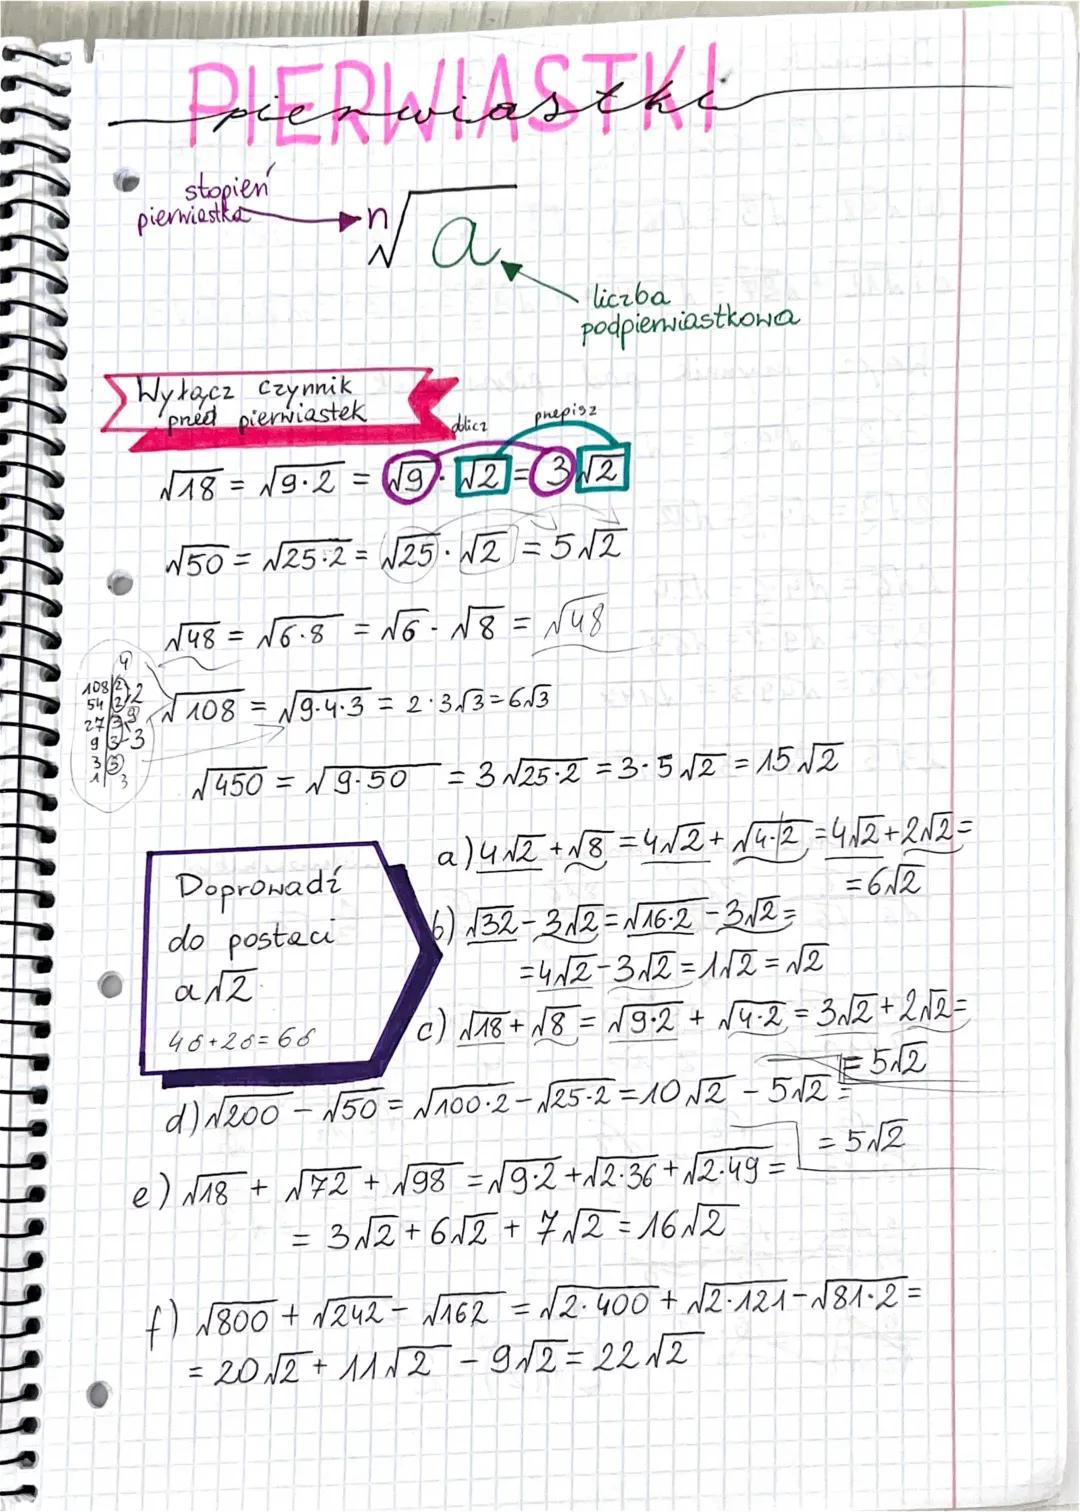 PIERWIASTKI
pierwiastki
stopień
pierwiastka
n√a
liczba
podpierwiastkowa
Wyłącz czynnik
przed pierwiastek
oblicz
przepisz
√18 = √9·2 = √9 · √2 = 3√2
√50 = √25·2 = √25 · √2 = 5√2
√48 = √6·8 = √6 · √8 = √48
4
108|2
54|2 2
27|3 9
9|3 3
3|3
1| 3
√108 = √9·4·3 = 2·3√3 = 6√3
√450 = √9·50 = 3√25·2 = 3·5√2 = 15√2
Doprowadź
do postaci
a√2
46+26=66
a) 4√2 + √8 = 4√2 + √4·2 = 4√2 + 2√2 =
= 6√2
b) √32 - 3√2 = √16·2 - 3√2 =
= 4√2 - 3√2 = 1√2 = √2
c) √18 + √8 = √9·2 + √4·2 = 3√2 + 2√2 =
= 5√2
d) √200 - √50 = √100·2 - √25·2 = 10√2 - 5√2 =
= 5√2
e) √18 + √72 + √98 = √9·2 + √2·36 + √2·49 =
= 3√2 + 6√2 + 7√2 = 16√2
f) √800 + √242 - √162 = √2·400 + √2·121 - √81·2 =
= 20√2 + 11√2 - 9√2 = 22√2